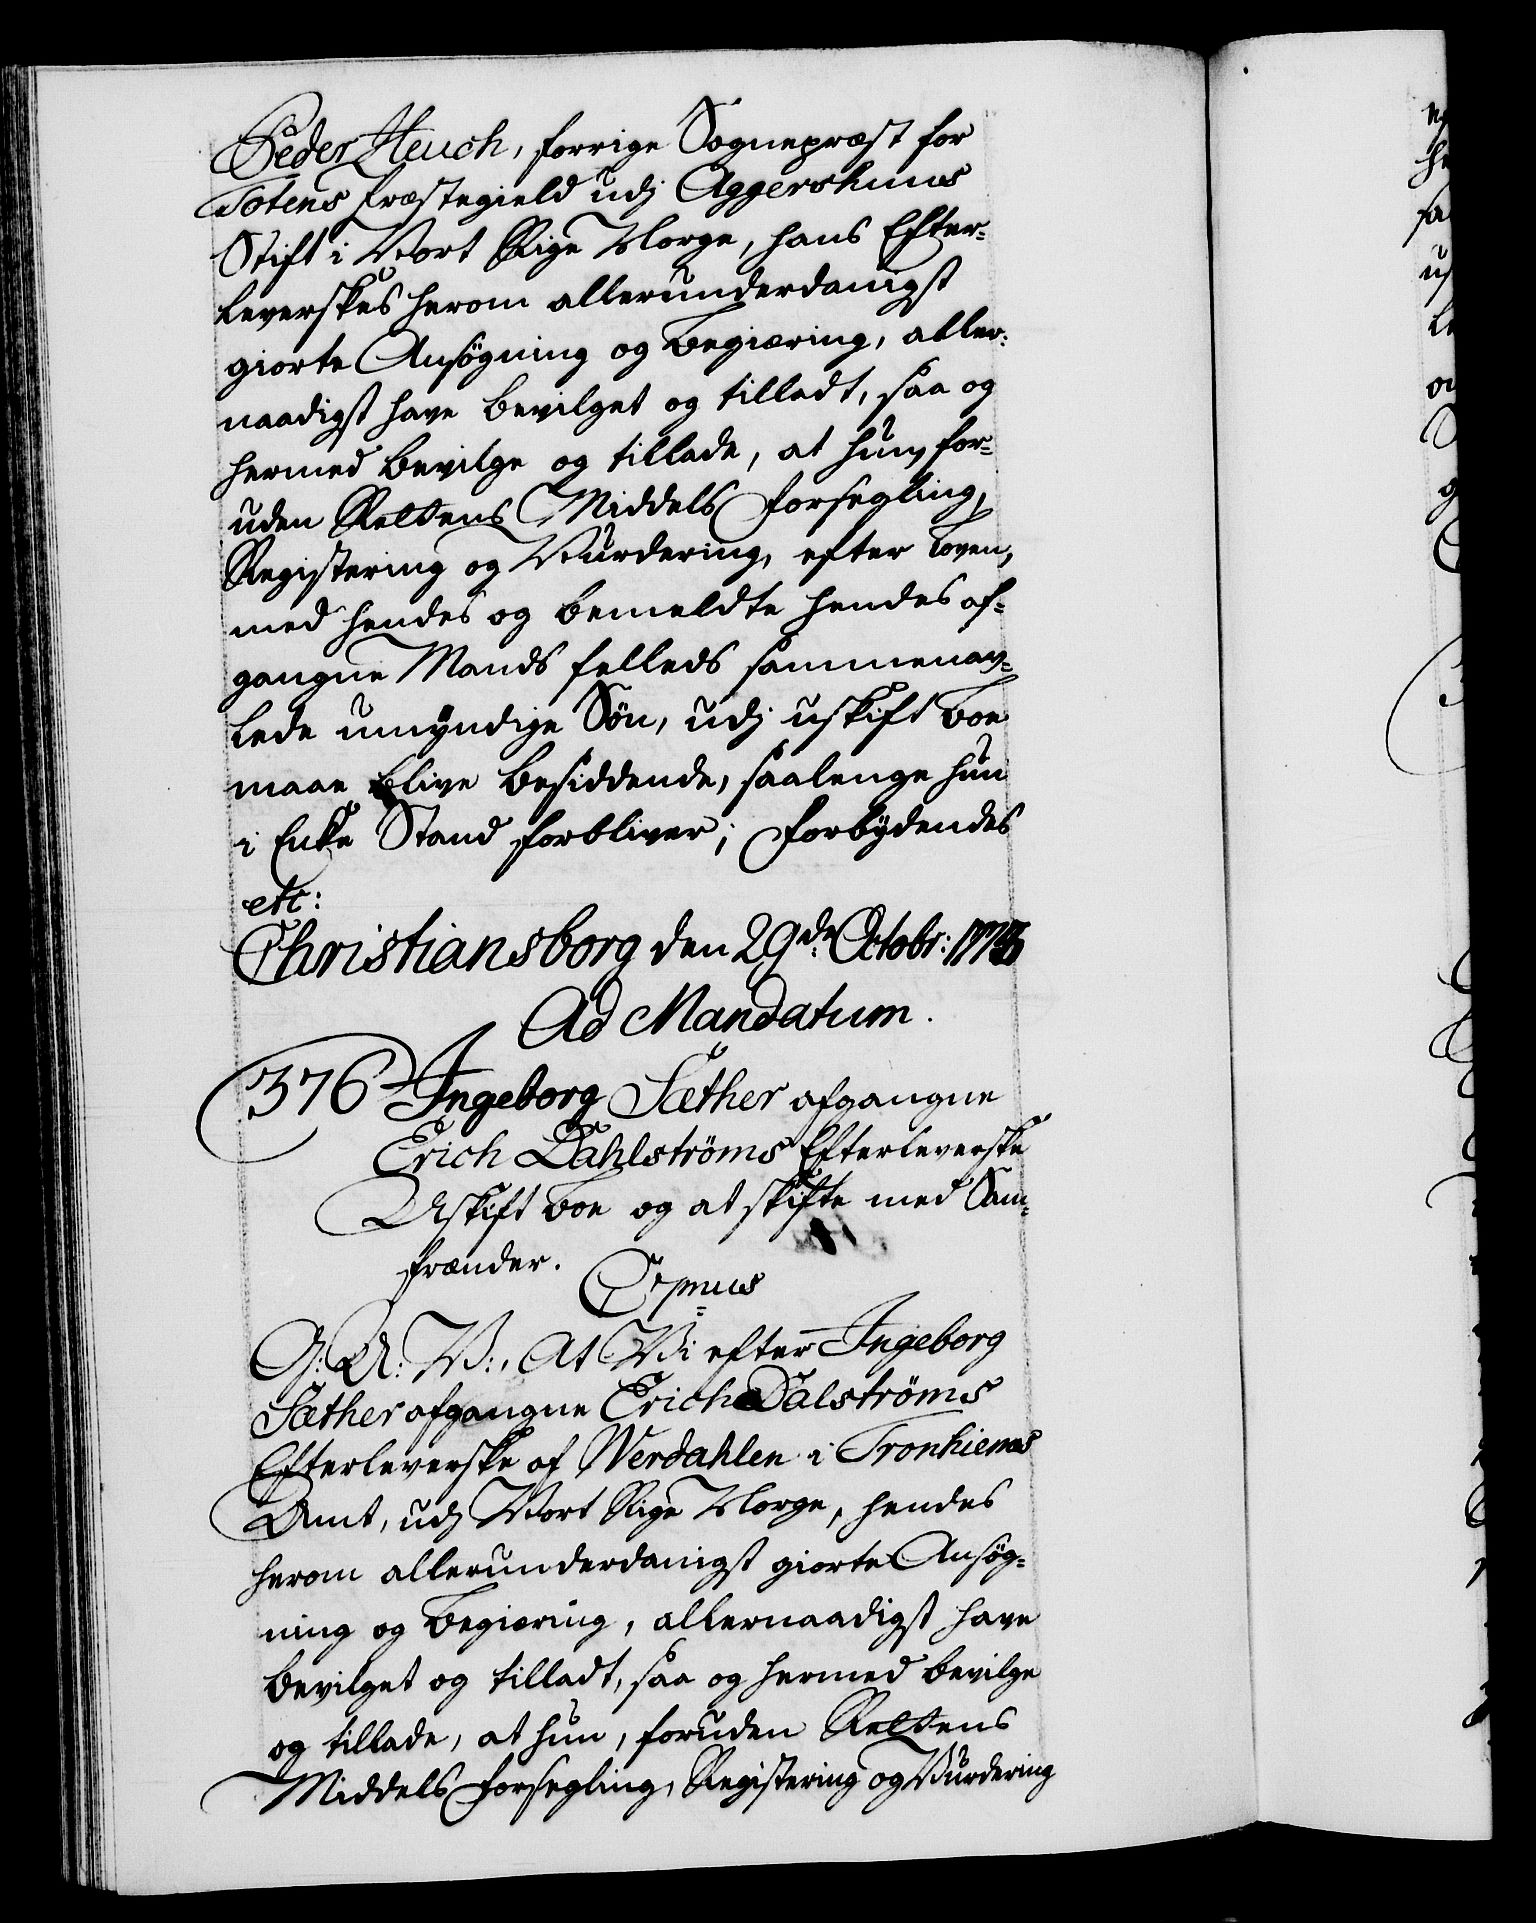 Peder Heuch, forrige Sognepræst for
Totens Præstegield udj Aggershuus
Stift i Vort Rige Norge, hans Efter-
leverskes herom allerunderdanigst
giorte Ansøgning og Begiæring, aller-
naadigst have bevilget og tilladt, saa og
hermed bevilge og tillade, at hun for-
uden Rettens Middels Forsegling,
Registering og Vurdering, efter Loven,
med hendes og bemeldte hendes af-
gangne Mands felleds sammenav-
lede umyndige Søn, udj uskift Boe
maae blive besiddende, saalenge hun
i Enke Stand forbliver; Forbydendes
etc:
Christiansborg den 29de Octobr:
Ad Mandatum.
376 Ingeborg Sæther afgangne
Erich Dahlströms Efterleverske
Uskift Boe og at skifte med Sam-
frænder.
Cärmus
G: A: V:, At Vi efter Ingeborg
Sæther afgangne Erich Dalströms
Efterleverske af Werdahlen i Tronhiems
Amt, udj Vort Rige Norge, hendes
herom allerunderdanigst giorte Ansøg-
ning og Begiæring, allernaadigst have
bevilget og tilladt, saa og hermed bevilge
og tillade, at hun, foruden Rettens
Middels Forsegling, Registering og Vurdering